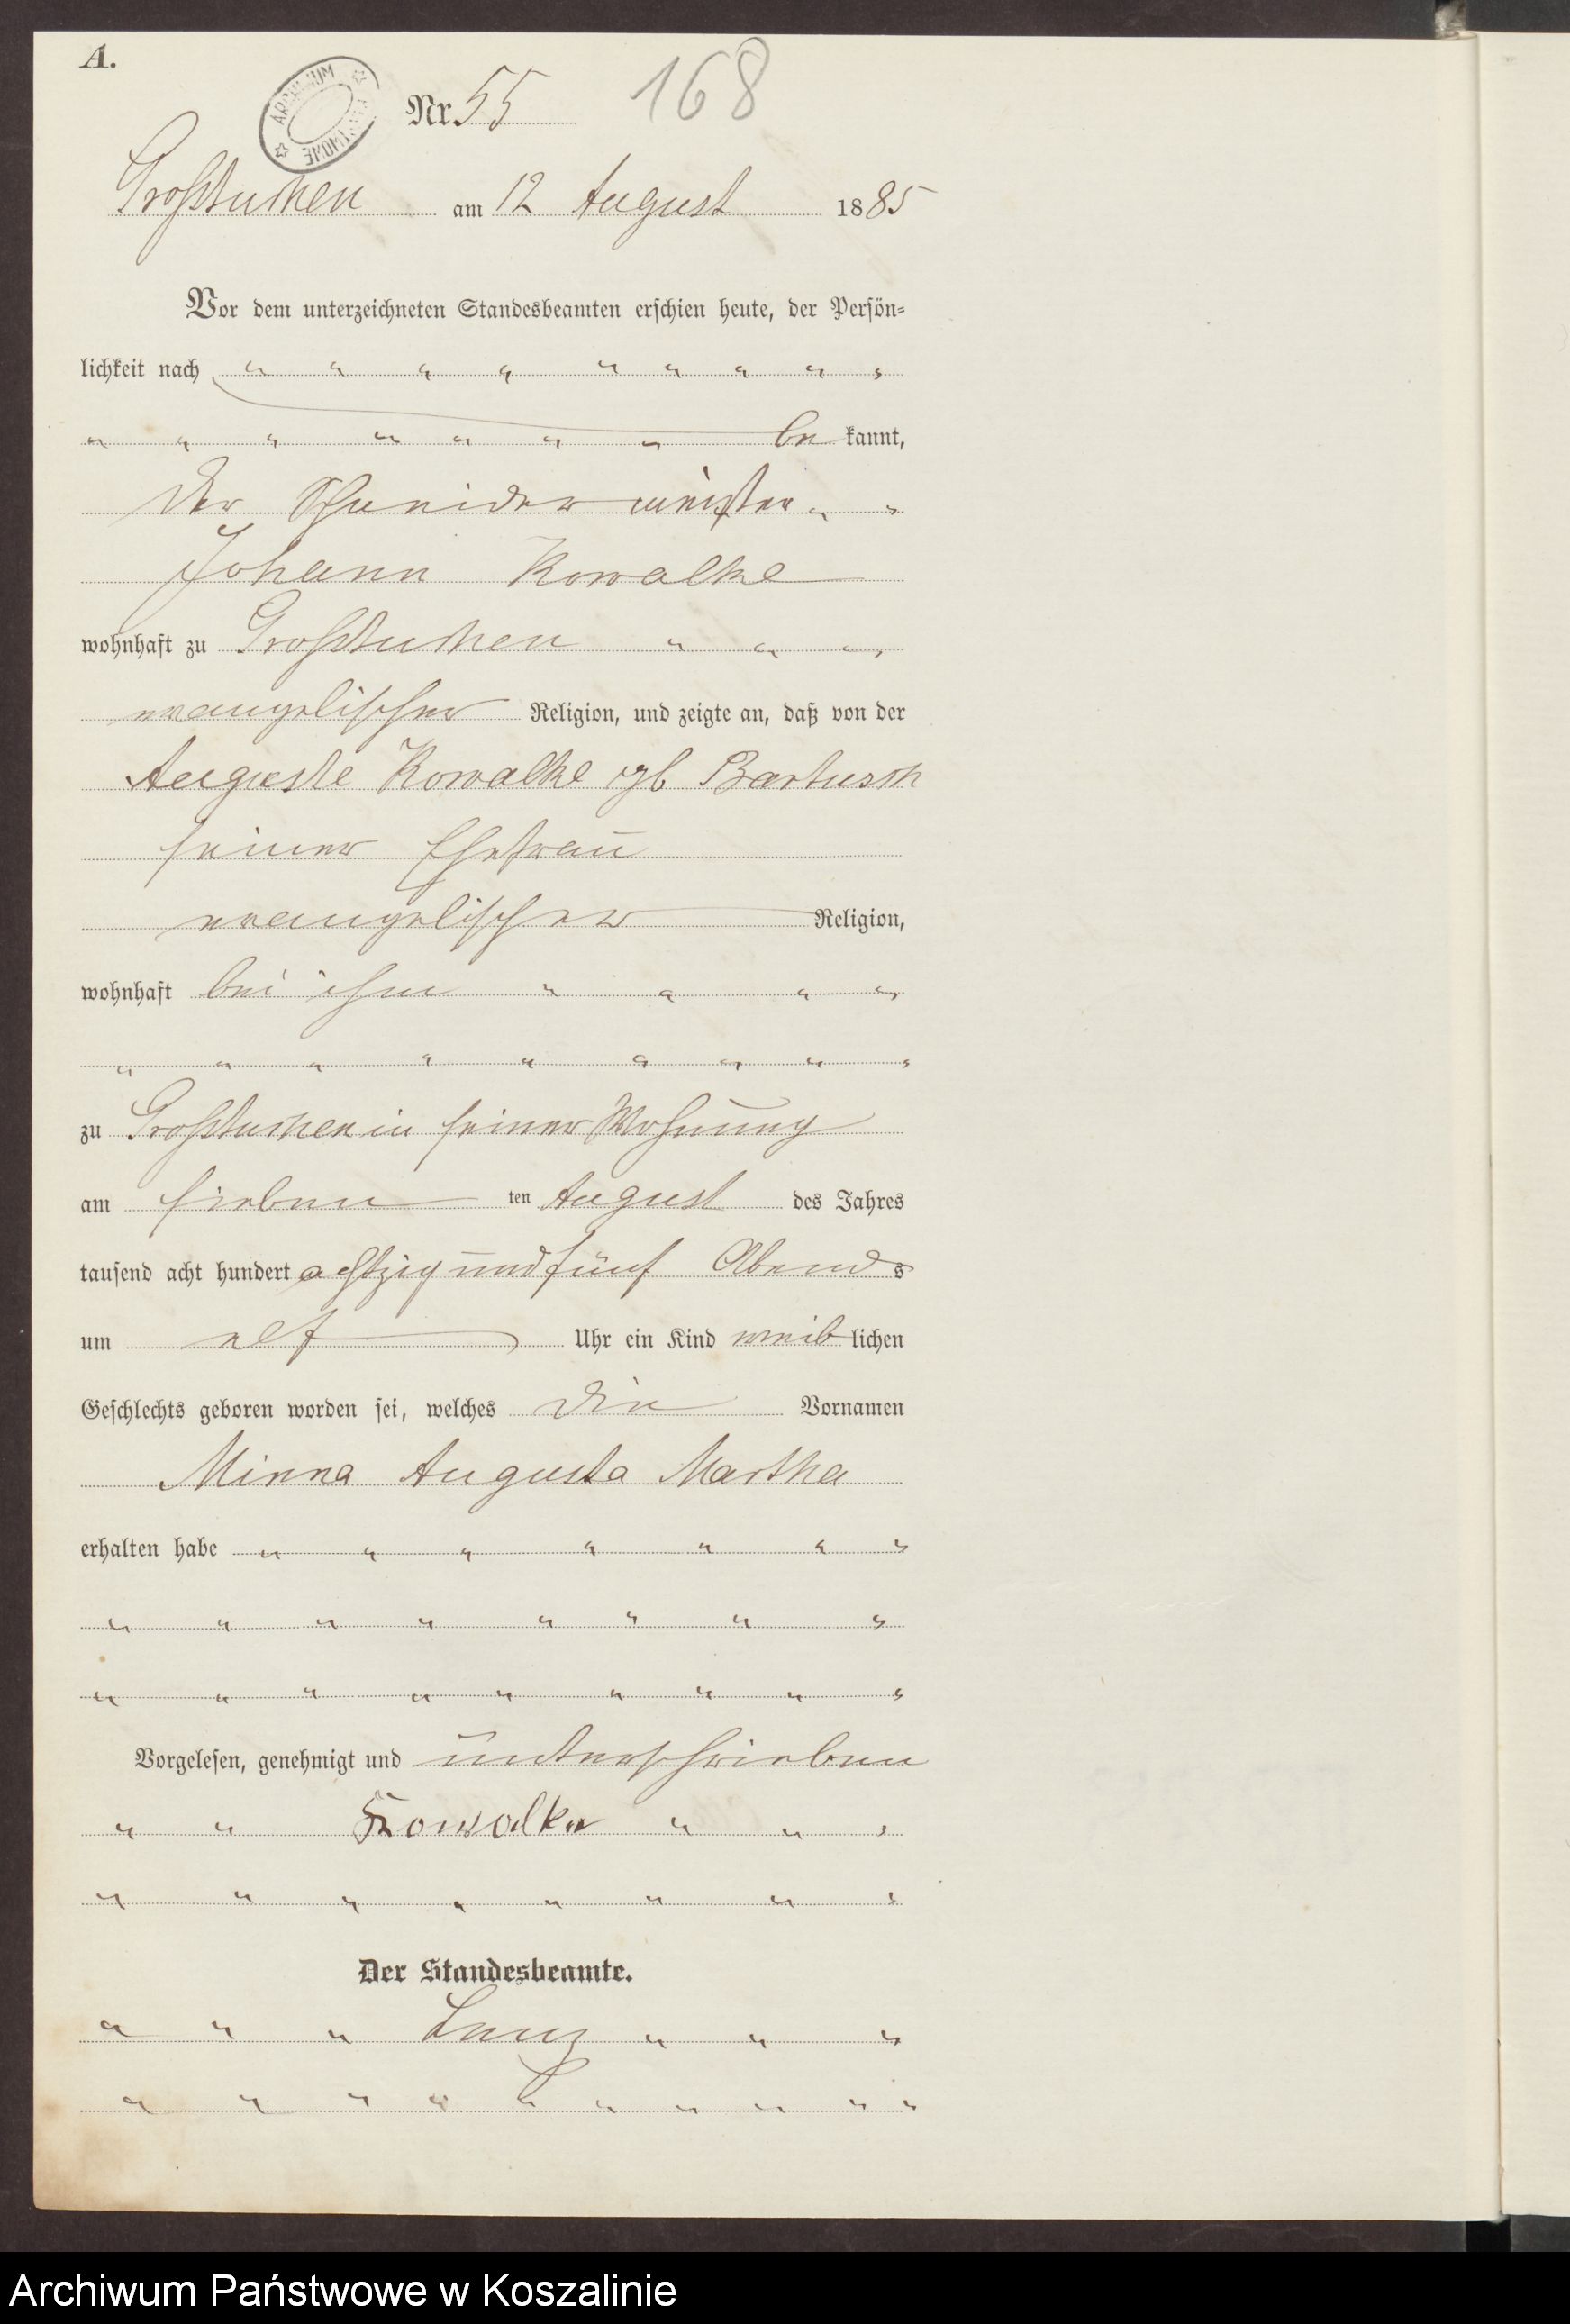 A.
ARCHIWUM PAŃSTWOWE
Nr. 55 168
Großtuchen am 12 August 1885
Vor dem unterzeichneten Standesbeamten erschien heute, der Persön-
lichkeit nach
be kannt,
der Schneidermeister
Johann Kowalke
wohnhaft zu Großtuchen
evangelischer Religion, und zeigte an, daß von der
Auguste Kowalke gb
seiner Ehefrau
evangelischer Religion,
wohnhaft bei ihm
zu Großtuchen in seiner Wohnung
am sieben ten August des Jahres
tausend acht hundert achtzig und fünf Abends
um elf Uhr ein Kind weib lichen
Geschlechts geboren worden sei, welches die Vornamen
Minna Augusta Martha
erhalten habe
Vorgelesen, genehmigt und unterschrieben
Kowalke
Der Standesbeamte.
Archiwum Państwowe w Koszalinie